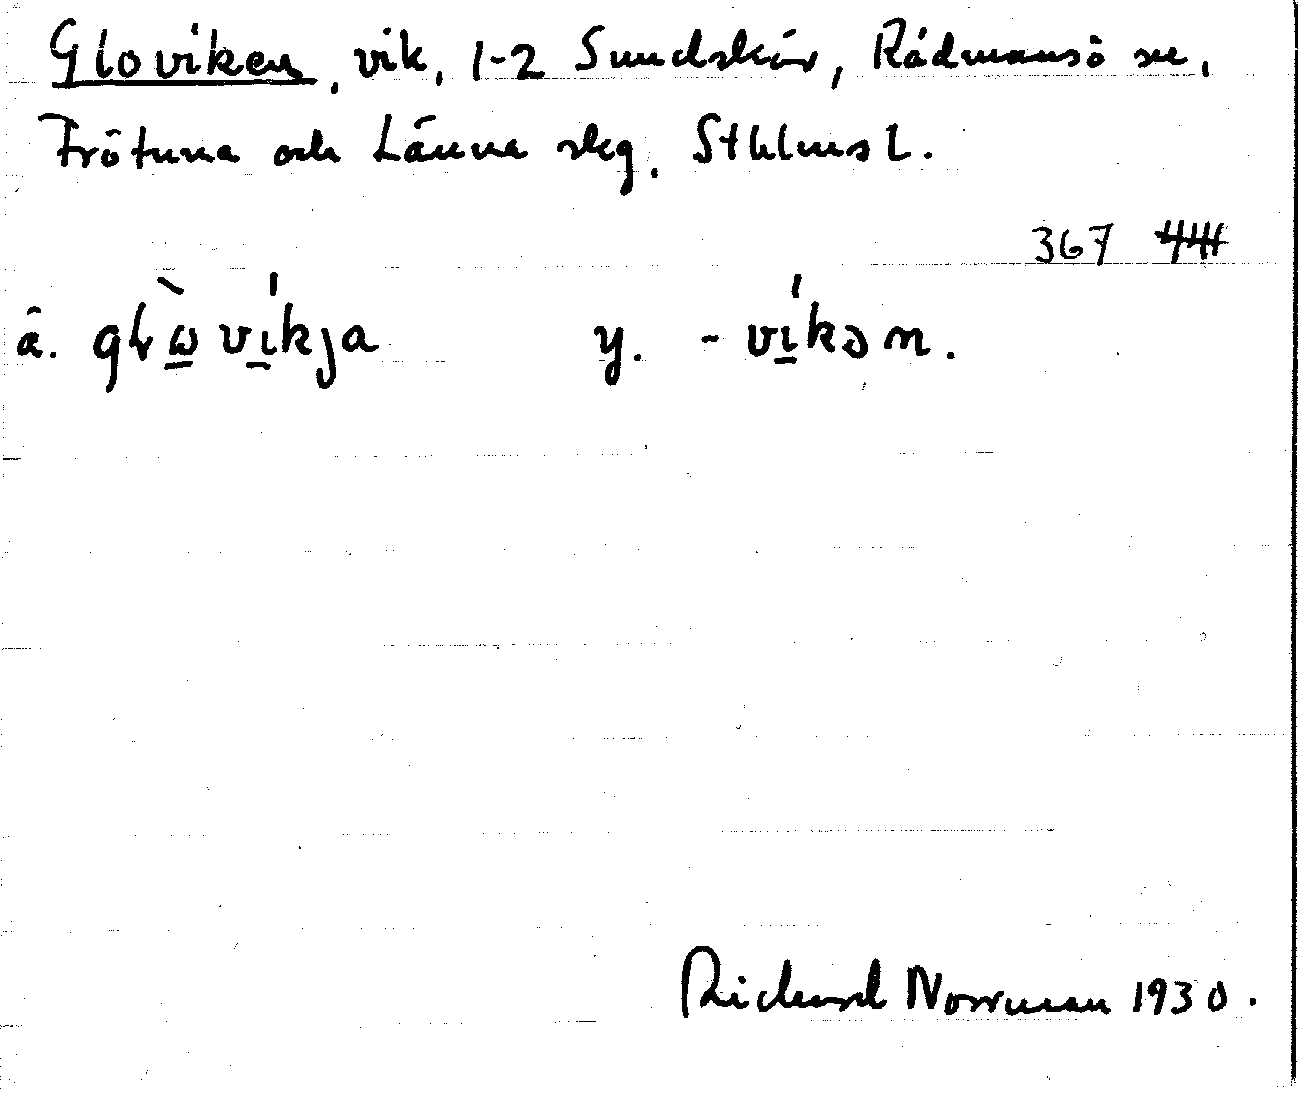 Gloviken, vik, 1-2 Sundskär, Rådmansö sn,
Frötuna och Länna skg, Sthlms l.
367
ä. glωvikja y. -vikən.
Richard Norrman 1930.